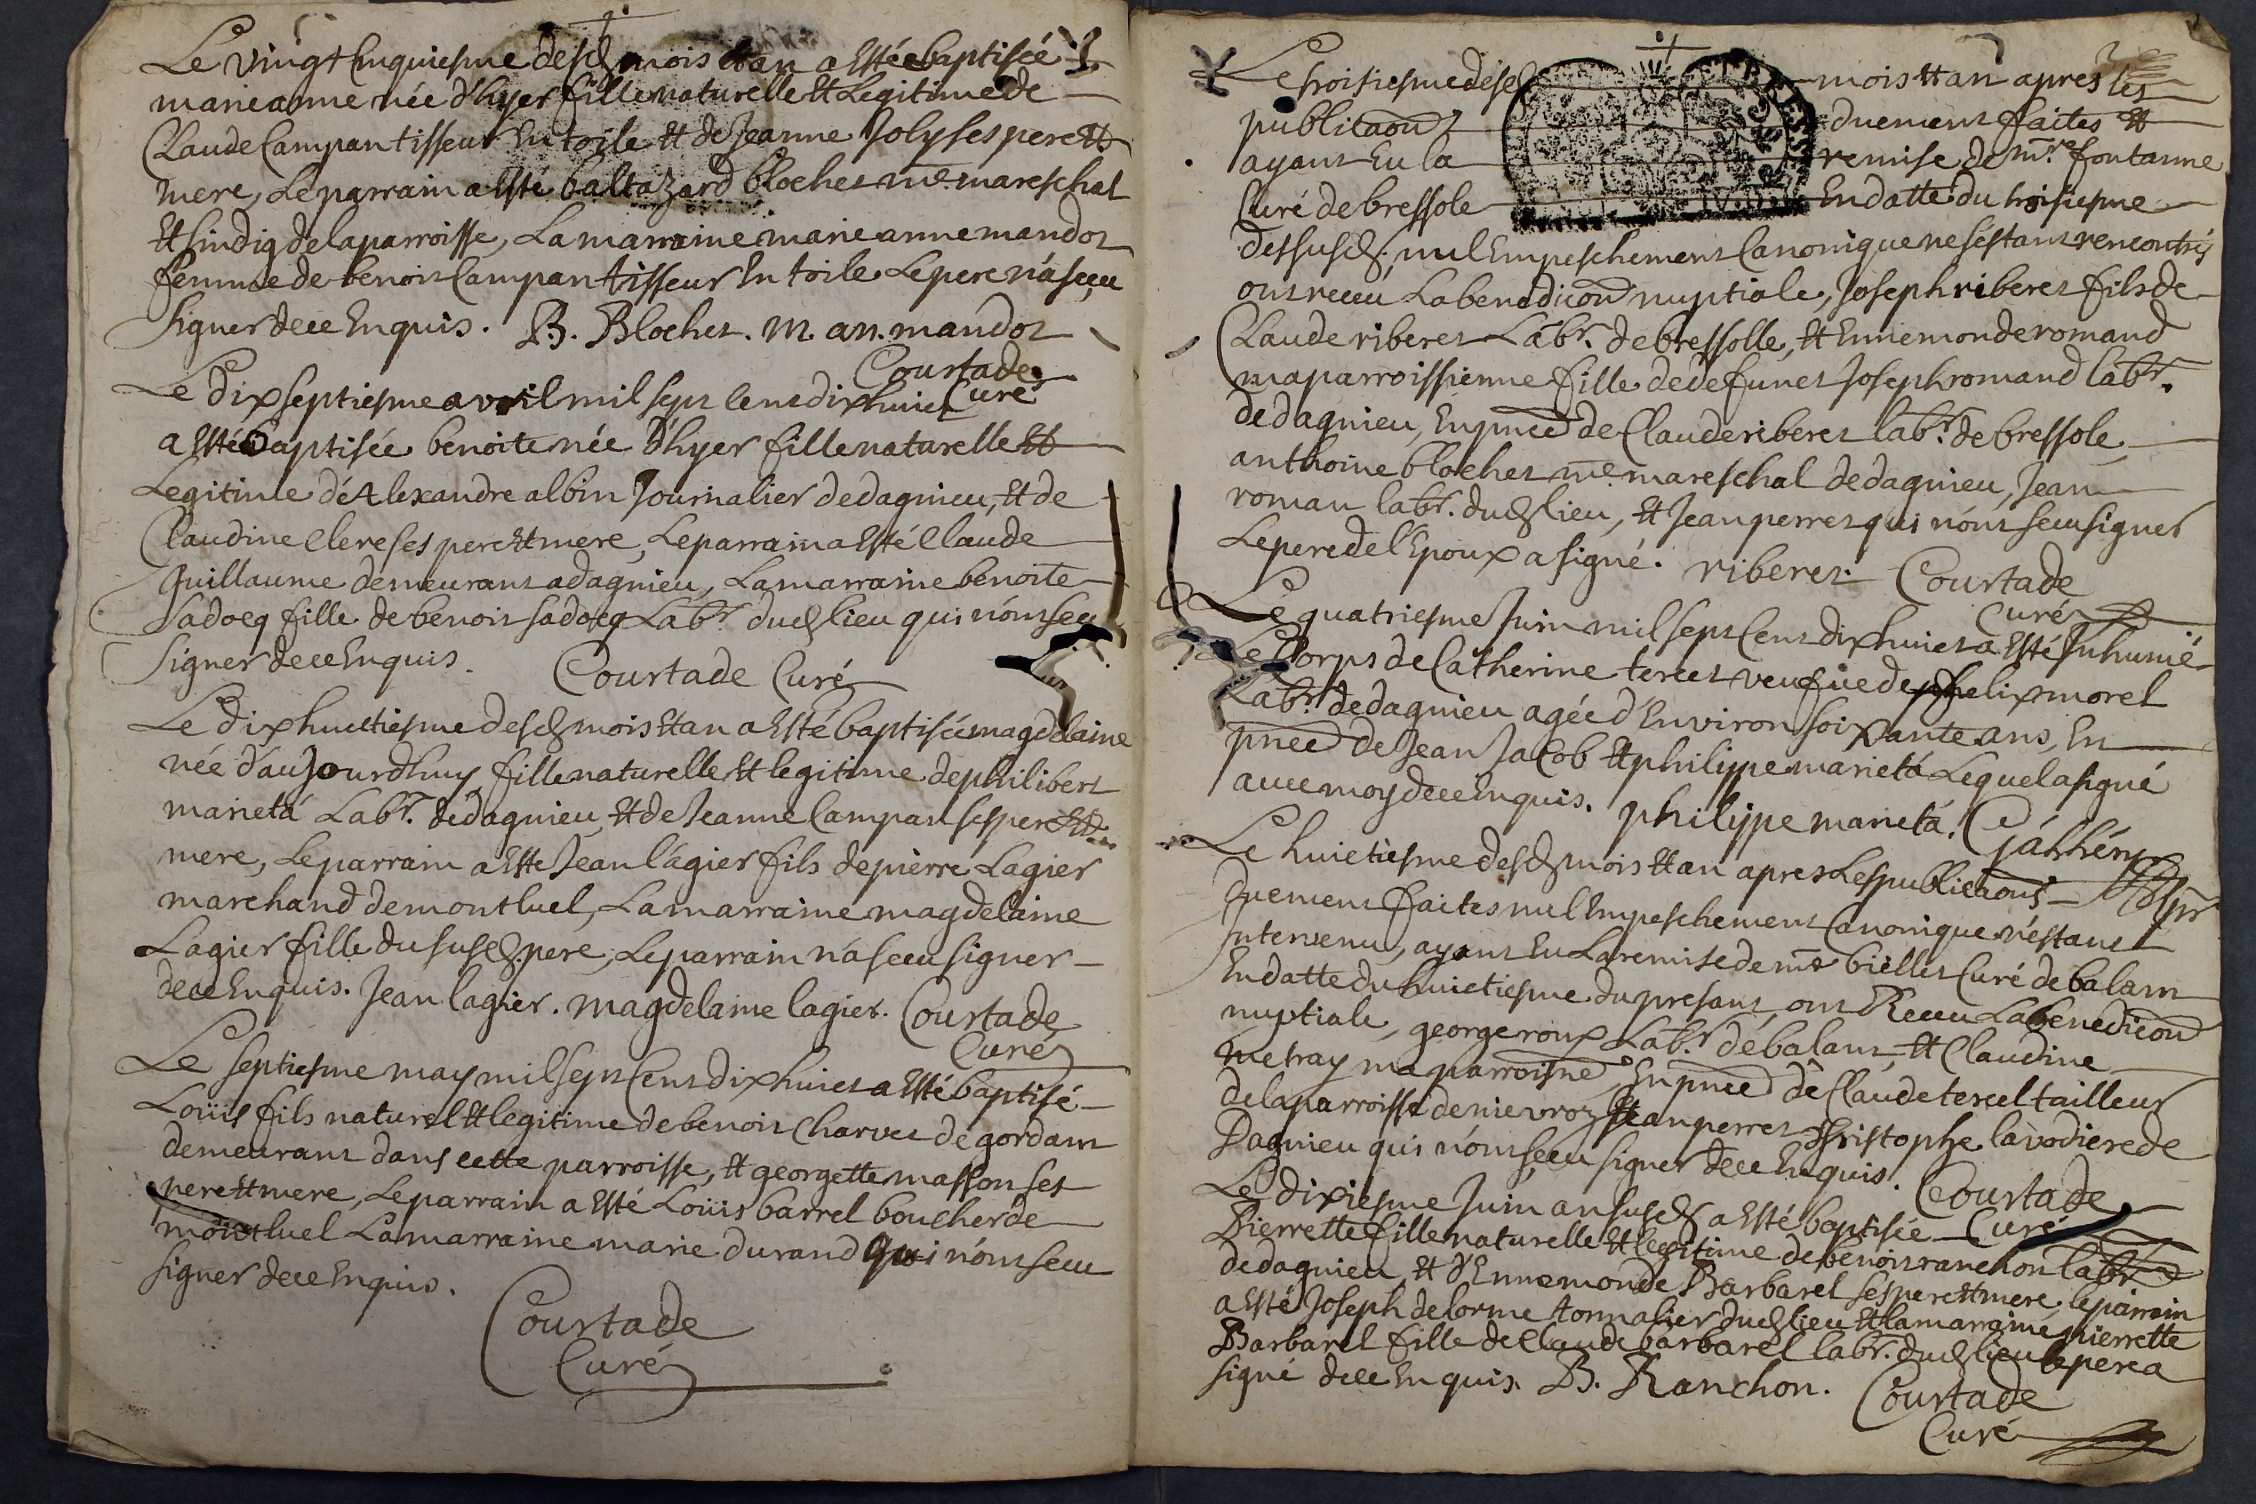 Le vingt cinquiesme desd mois et an a esté baptisée
marieanne née d'hyer fille naturelle et legitime de
Claude Campan tisseur en toile et de Jeanne Joly ses pere et
mere, Le parrain a esté baltazard blochet me mareschal
et sindiq de la parroisse, La marraine marie anne mandot
femme de benoit Campan tisseur en toile Le pere n'a sceu
signer de ce enquis. B. Blochet. m. an. mandot
Courtade
Curé
Le dixseptiesme avril mil sept cent dixhuict
a esté baptisée benoite née d'hyer fille naturelle et
Legitime d'Alexandre albin Journalier de dagnieu, et de
Claudine Clere ses pere et mere, Le parrain a esté Claude
Guillaume demeurant a dagnieu, La marraine benoite
Sadoeq fille de benoit sadoeq Labr dud lieu qui n'ont sceu
signer de ce enquis. Courtade Curé
Le dixhuictiesme desd mois et an a esté baptisée magdelaine
née d'aujourd'huy fille naturelle et legitime de philibert
marietá Labr. de dagnieu et de Jeanne Campan ses pere et
mere, Le parrain a esté Jean Lágier fils de pierre Lagier
marchand de montluel, La marraine magdelaine
Lagier fille du susd. pere, Le parrain n'a sceu signer
de ce enquis. Jean lagier. magdelaine lagier. Courtade
Curé
Le septiesme may mil sept Cent dixhuict a esté baptisé
Loüis fils naturel et legitime de benoit Charvet de gordans
demeurant dans cette parroisse, et georgette masson ses
pere et mere, Le parrain a esté Loüis barrel boucher de
montluel La marraine marie durand qui n'ont sceu
signer de ce enquis.
Courtade
Curé
Le troisiesme desd mois et an apres les
publicaons duement faites et
ayant eu la remise de mre fontanne
Curé de bressole en datte du troisiesme
dessusd, nul empeschement Canonique ne s'estant rencontrés
ont receu La benedicon nuptiale, Joseph riberet fils de
Claude riberet Labr. de bressolle, et Ennemonde romand
ma parroissienne fille de defunct Joseph romand labr.
de dagnieu, En pnce de Claude riberet labr. de bressole
anthoine blochet me mareschal de dagnieu, Jean
roman labr. dud lieu, et Jean perret qui n'ont sceu signer
Le pere de l'Epoux a signé. riberet. Courtade
Curé
Le quatriesme Juin mil sept Cent dixhuict a esté Inhumé
Le Corps de Catherine tercet veufue de phelix morel
Labr. de dagnieu agée d'Environ soixante ans, En
pnce de Jean Jacob et philippe marietá Lequel a signé
avec moy de ce enquis. philippe marietá.
Le huictiesme desd mois et an apres Les publicaons
duement faites nul Empeschement Canonique n'éstant
Intervenu, ayant eu La remise de mre biellet Curé de balam
En datte du huictiesme du presant, ont Receu La benedicon
nuptiale, george roux Labr. de balant, et Claudine
metray ma parroisne, En pnce de Claude tercel tailleur
de la parroisse de nievroz et Jean perret Christophe lavodiere de
Dagnieu qui n'ont sceu signer de ce Enquis. Courtade
Curé
Le dixiesme Juin an susd a esté baptisée
Pierrette fille naturelle et legitime de benoit ranchon labr
de dagnieu et d'Ennemonde Barbarel ses pere et mere, le parrain
a esté Joseph delorme tonnalier dud lieu et la marraine pierrette
Barbarel fille de Claude barbarel labr. dud lieu le pere a
signé de ce enquis. B. Ranchon. Courtade
Curé